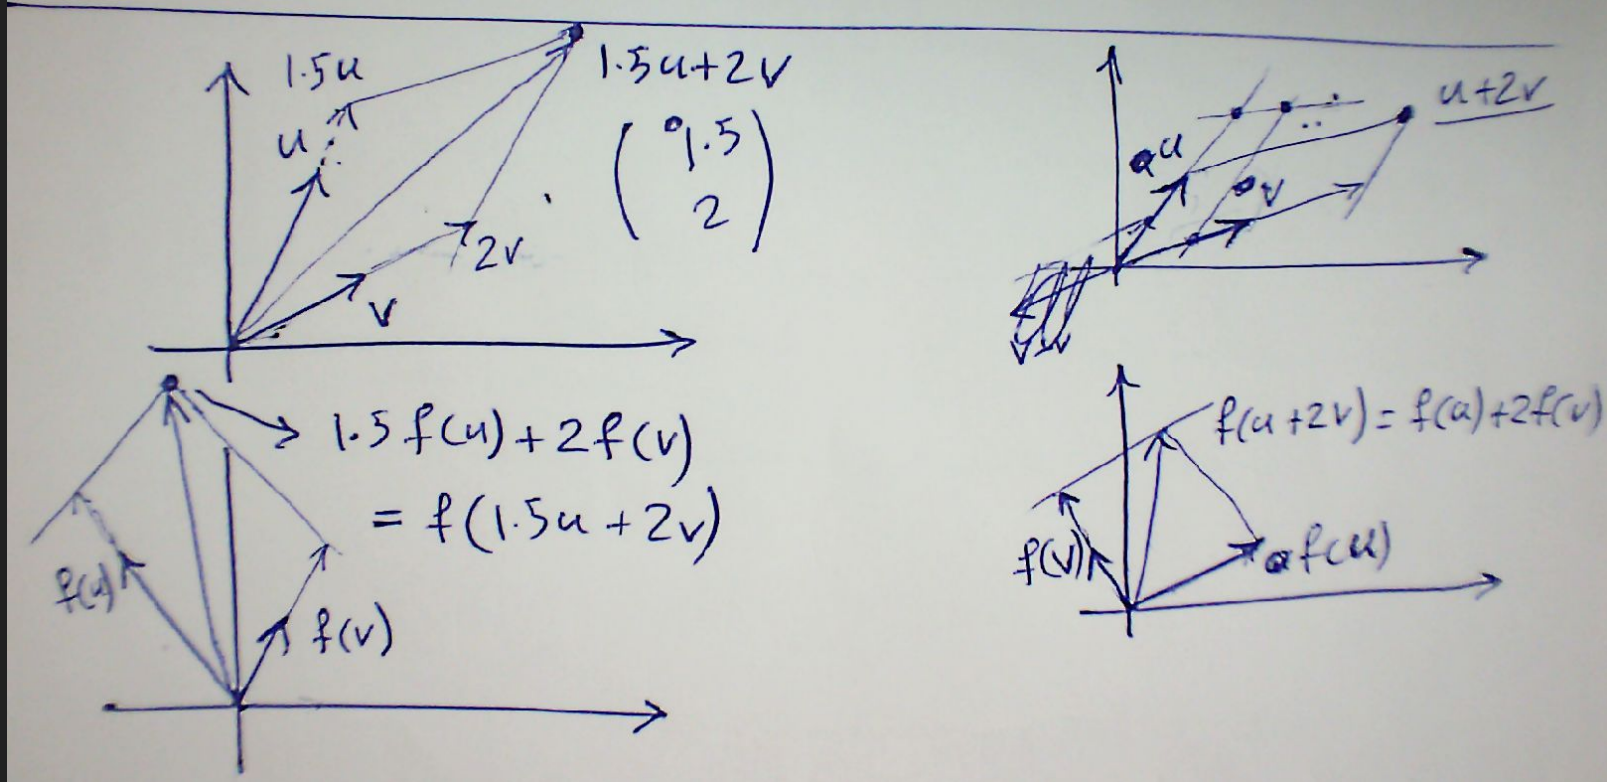 1.5u
u
1.5u+2v
(1.5
2)
2v
v
1.5f(u)+2f(v)
= f(1.5u+2v)
f(u)
f(v)
u+2v
u
v
f(u+2v)=f(u)+2f(v)
f(v)
f(u)